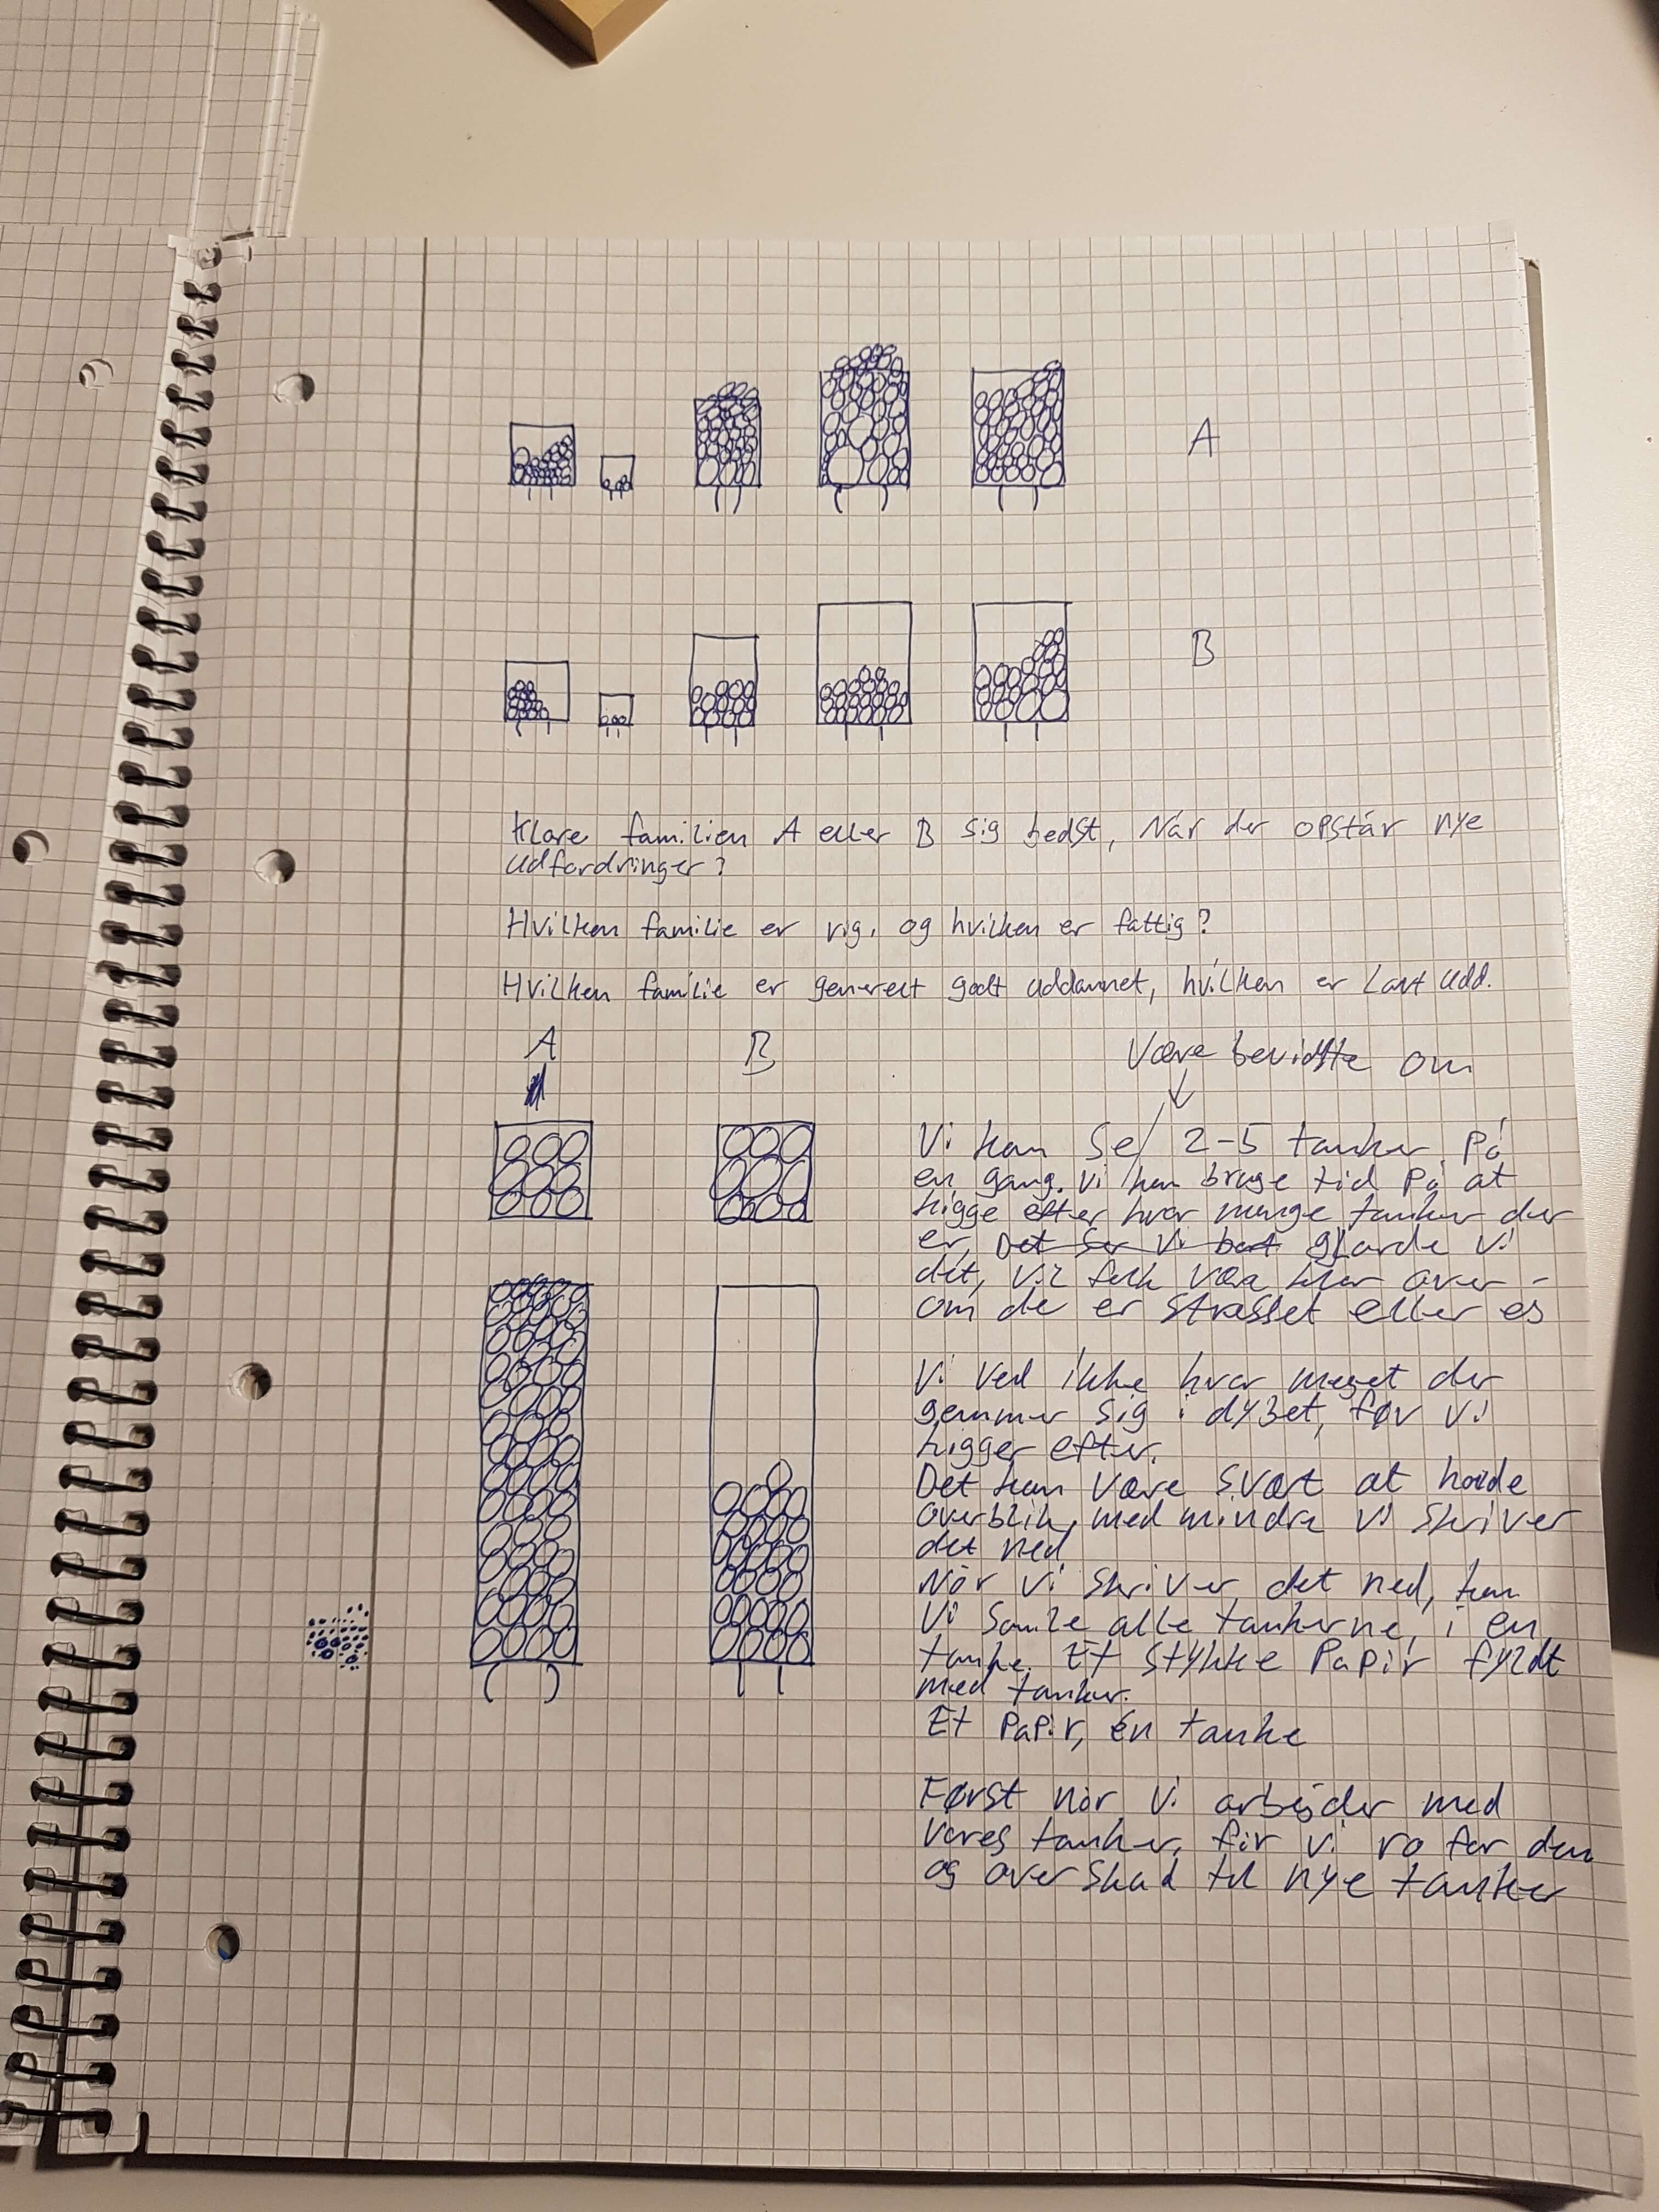 A
B
Klare familien A eller B sig bedst, Når der opstår nye
udfordringer?
Hvilken familie er rig, og hvilken er fattig?
Hvilken familie er generelt godt uddannet, hvilken er Lavt udd.
A B Være bevidste om
Vi kan se 2-5 tanker på
en gang. vi kan bruge tid på at
kigge efter hvor mange tanker der
er, Det ser vi bort gjorde vi
det, vil folk være klar over -
om de er stresset eller ej
Vi ved ikke hvor meget der
gemmer sig i dybet, før vi
kigger efter.
Det kan være svært at holde
overblik, med mindre vi skriver
det ned
Når vi skriver det ned, kan
vi samle alle tankerne, i en
tanke. Et stykke Papir fyldt
med tanker.
Et Papir, én tanke
Først når vi arbejder med
vores tanker, får vi ro for dem
og overskud til nye tanker